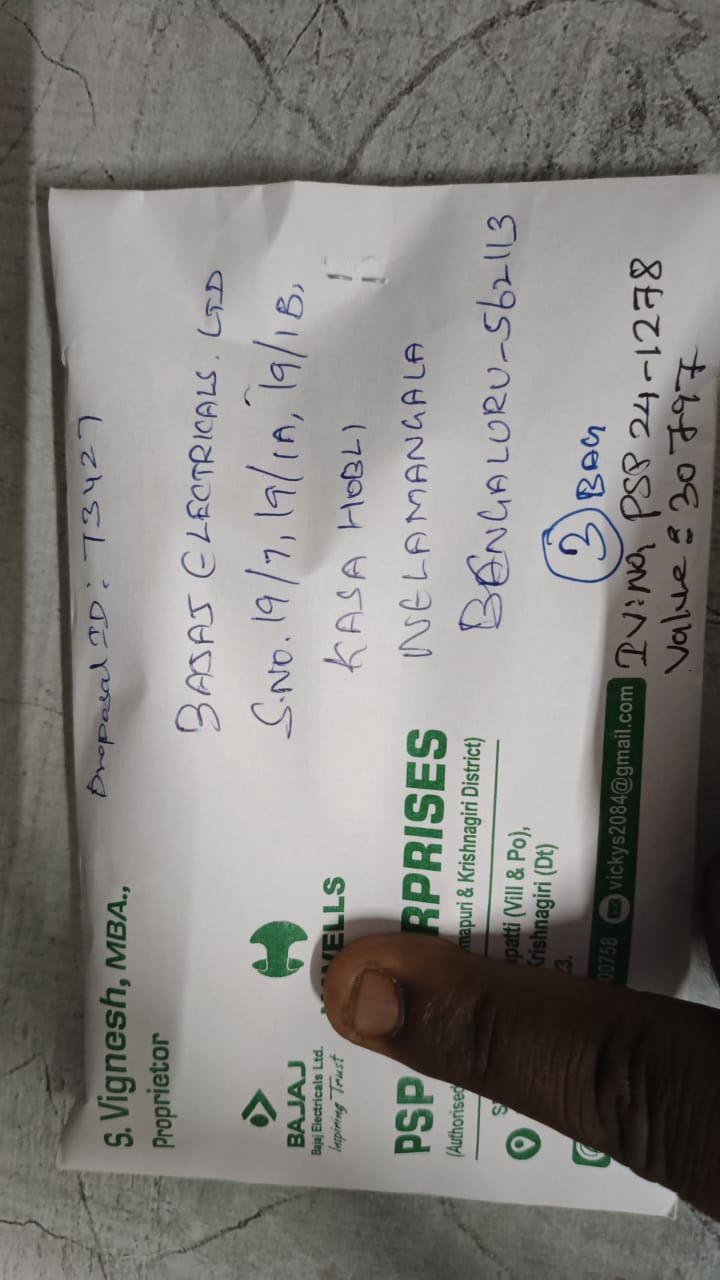 S. Vignesh, MBA.,
Proprietor
BAJAJ
Bajaj Electricals Ltd.
Inspiring Trust
VELLS
PSP RPRISES
(Authorised mapuri & Krishnagiri District)
patti (Vill & Po),
Krishnagiri (Dt)
3.
00758 vickys2084@gmail.com
Proposal ID: 73427
BAJAJ ELECTRICALS. LTD
S.NO. 19/7, 19/1A, 19/1B,
KASA HOBLI
NELAMANGALA
BENGALURU-562113
3 BAG
IV:NO, PSP 24-1278
Value: 30797